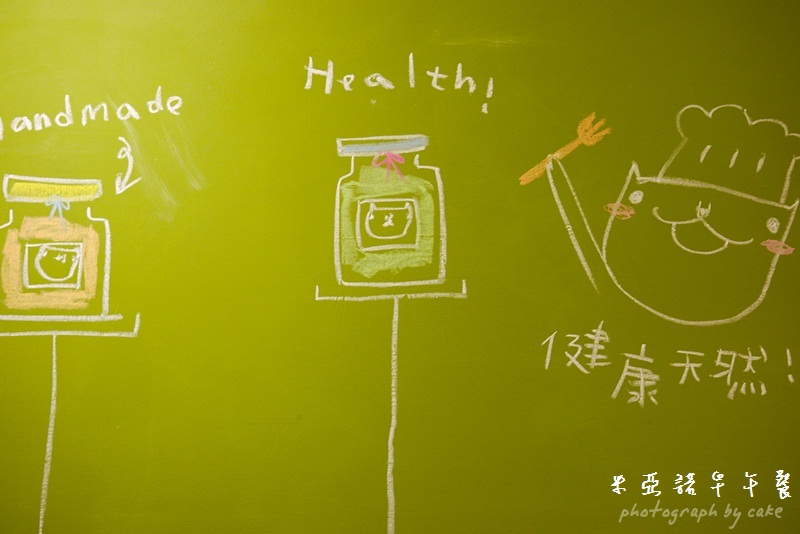 Handmade
Health!
健康天然!
米亞諾早午餐
photograph by cake